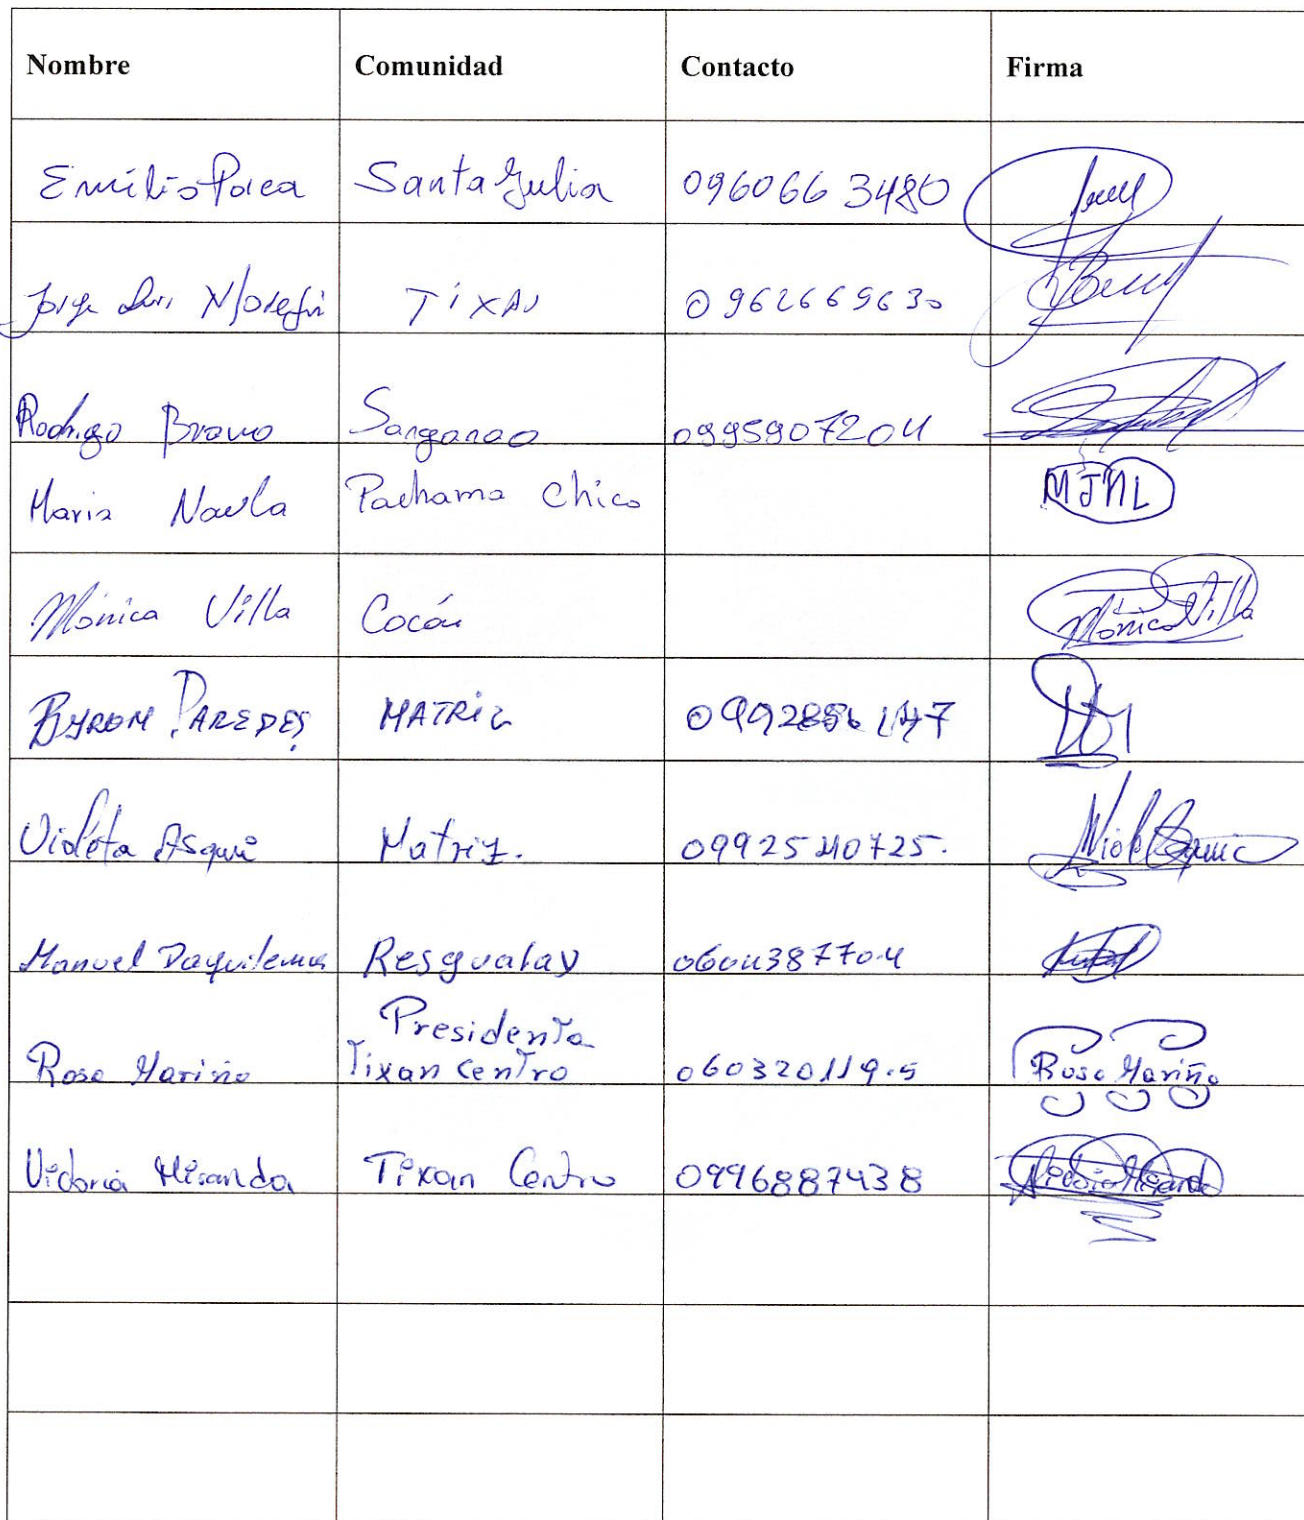 Nombre Comunidad Contacto Firma
Emilio Santa Julia 0960663480
Jorge Luis TIXAN 0962669630
Rodrigo Bravo Sanganao 0995907204
Maria Naula Pachama Chico MJNL
Mónica Villa Cocán Mónica Villa
BYRON PAREDES MATRIZ
Violeta Asqui Matriz. 0992540725.
Manuel Daquilema Resgualay 060438770-4
Presidenta
Rosa Mariño Tixan Centro 060320119-5 Rosa Mariño
Victoria Miranda Tixan Centro 0996887438 Victoria Miranda